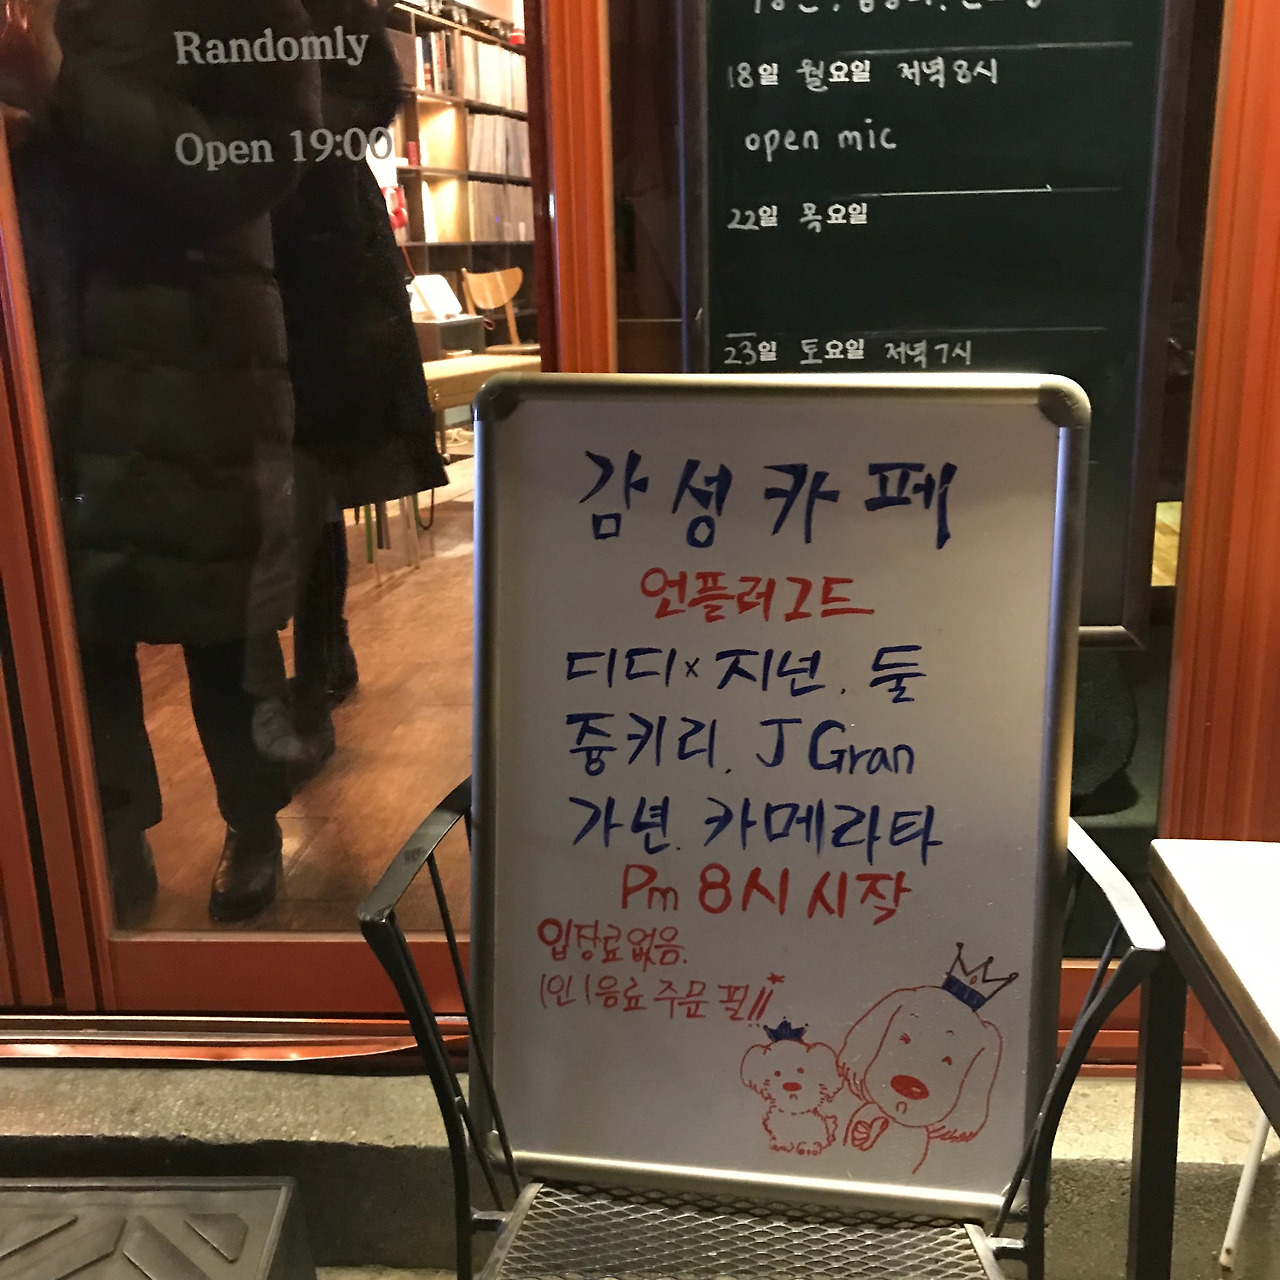 Randomly
Open 19:00
18일 월요일 저녁 8시
open mic
22일 목요일
23일 토요일 저녁 7시
감성카페
언플러그드
디디×지넌. 둘
쥼키리. J Gran
가년. 카메라타
Pm 8시 시작
입장료없음.
1인 1음료 주문 필!!